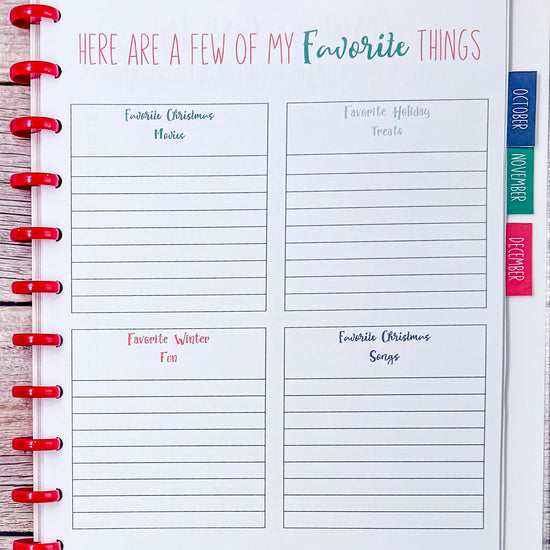 HERE ARE A FEW OF MY Favorite THINGS
Favorite Christmas
Movies
Favorite Holiday
Treats
Favorite Winter
Fun
Favorite Christmas
Songs
OCTOBER
NOVEMBER
DECEMBER